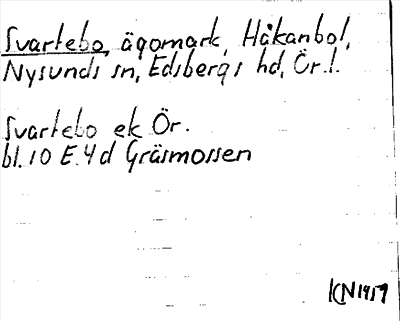 Svartebo, ägomark, Håkanbol,
Nysunds sn, Edsbergs hd, Ör. l.
Svartebo ek Ör.
bl. 10 E. 4 d Gräsmossen
KN1957